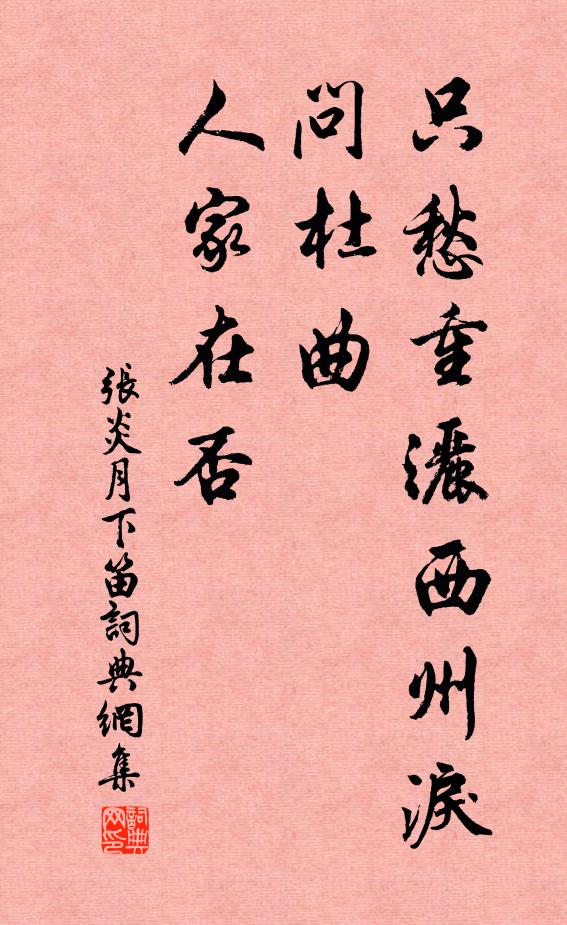 只愁重灑西州淚
問杜曲
人家在否
張炎月下笛詞典網集
詞典网印